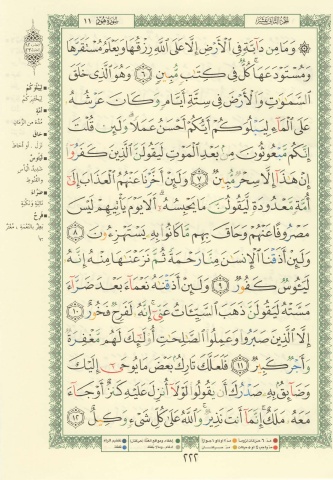 الجزء الثاني عشر
سورة هود
١١
۞ وَمَا مِن دَآبَّةٍ فِي ٱلْأَرْضِ إِلَّا عَلَى ٱللَّهِ رِزْقُهَا وَيَعْلَمُ مُسْتَقَرَّهَا
وَمُسْتَوْدَعَهَا كُلٌّ فِي كِتَٰبٍ مُّبِينٍ ٦ وَهُوَ ٱلَّذِي خَلَقَ
ٱلسَّمَٰوَٰتِ وَٱلْأَرْضَ فِي سِتَّةِ أَيَّامٍ وَكَانَ عَرْشُهُۥ
عَلَى ٱلْمَآءِ لِيَبْلُوَكُمْ أَيُّكُمْ أَحْسَنُ عَمَلًا وَلَئِن قُلْتَ
إِنَّكُم مَّبْعُوثُونَ مِنۢ بَعْدِ ٱلْمَوْتِ لَيَقُولَنَّ ٱلَّذِينَ كَفَرُوٓا۟
إِنْ هَٰذَآ إِلَّا سِحْرٌ مُّبِينٌ ٧ وَلَئِنْ أَخَّرْنَا عَنْهُمُ ٱلْعَذَابَ إِلَىٰٓ
أُمَّةٍ مَّعْدُودَةٍ لَّيَقُولُنَّ مَا يَحْبِسُهُۥٓ أَلَا يَوْمَ يَأْتِيهِمْ لَيْسَ
مَصْرُوفًا عَنْهُمْ وَحَاقَ بِهِم مَّا كَانُوا۟ بِهِۦ يَسْتَهْزِءُونَ ٨
وَلَئِنْ أَذَقْنَا ٱلْإِنسَٰنَ مِنَّا رَحْمَةً ثُمَّ نَزَعْنَٰهَا مِنْهُ إِنَّهُۥ
لَيَـُٔوسٌ كَفُورٌ ٩ وَلَئِنْ أَذَقْنَٰهُ نَعْمَآءَ بَعْدَ ضَرَّآءَ
مَسَّتْهُ لَيَقُولَنَّ ذَهَبَ ٱلسَّيِّـَٔاتُ عَنِّيٓ إِنَّهُۥ لَفَرِحٌ فَخُورٌ ١٠
إِلَّا ٱلَّذِينَ صَبَرُوا۟ وَعَمِلُوا۟ ٱلصَّٰلِحَٰتِ أُو۟لَٰٓئِكَ لَهُم مَّغْفِرَةٌ
وَأَجْرٌ كَبِيرٌ ١١ فَلَعَلَّكَ تَارِكٌۢ بَعْضَ مَا يُوحَىٰٓ إِلَيْكَ
وَضَآئِقٌۢ بِهِۦ صَدْرُكَ أَن يَقُولُوا۟ لَوْلَآ أُنزِلَ عَلَيْهِ كَنزٌ أَوْ جَآءَ
مَعَهُۥ مَلَكٌ إِنَّمَآ أَنتَ نَذِيرٌ وَٱللَّهُ عَلَىٰ كُلِّ شَيْءٍ وَكِيلٌ ١٢
٢٢٢
لِيَبْلُوَكُمْ
ليختبركم
حاق
ضرّاء
لفرح